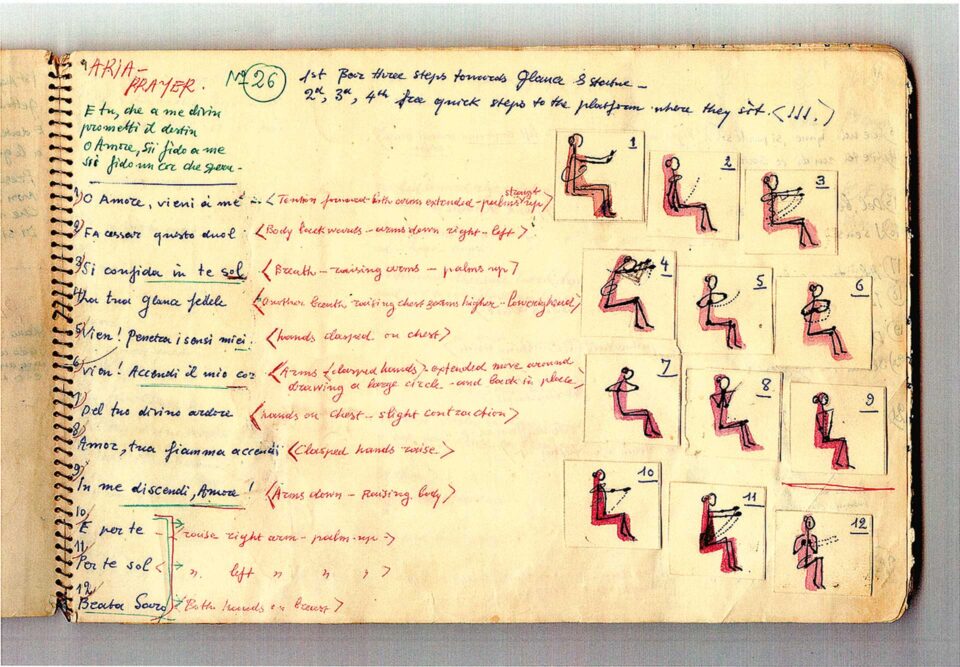 ARIA –
PRAYER.
No 26
1st Bar three steps towards Glauca's statue –
2d, 3d, 4th few quick steps to the platform where they sit.
E tu, che a me divin
prometti il destin
O Amore, sii fido a me
sii fido un cor che spera –
1) O Amore, vieni a me – < Tention forward both arms extended – palms straight up >
2) Fa cessar questo duol < Body backwards – arms down right – left >
3) Si confida in te sol < Breath – raising arms – palms up >
4) La tua Glauca fedele < another breath raising chest & arms higher –
5) Vien! Penetra i sensi miei. < hands clasped on chest >
6) Vien! Accendi il mio cor < Arms (clasped hands) extended move around
drawing a large circle – and back in place >
7) Del tuo divino ardore < hands on chest – slight contraction >
8) Amor, tua fiamma accendi < Clasped hands raise. >
9) In me discendi, Amore! < Arms down – Raising body >
10) E per te – < raise right arm – palm up – >
11) Per te sol < " left " " " >
12) Beata Sarò < Both hands on breast >
1
2
3
4
5
6
7
8
9
10
11
12